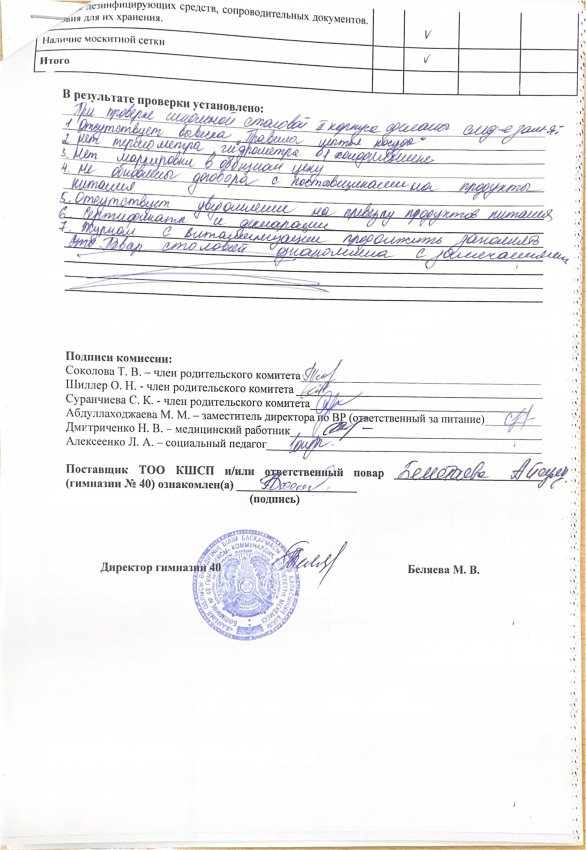 дезинфицирующих средств, сопроводительных документов.
для их хранения.
Наличие москитной сетки V
Итого V
В результате проверки установлено:
При проверке школьной столовой II корпуса сделаны след-е замеч:
1. Отсутствует вывеска "Правила мытья посуды"
2. Нет термометра, гидрометра в
3. Нет маркировки в овощном цеху
4. Не обновлены договора с поставщиками на продукты
питания
5. Отсутствует уведомление на проверку продуктов питания
6. Сертификата и декларации
7. Журнал С витаминизации продолжить заполнять
Повар столовой ознакомлена с замечаниями
Подписи комиссии:
Соколова Т. В. – член родительского комитета
Шиллер О. Н. - член родительского комитета
Суранчиева С. К. - член родительского комитета
Абдуллаходжаева М. М. – заместитель директора по ВР (ответственный за питание)
Дмитриченко Н. В. – медицинский работник
Алексеенко Л. А. – социальный педагог
Поставщик ТОО КШСП и/или ответственный повар
(гимназии № 40) ознакомлен(а)
(подпись)
Директор гимназии 40 Беляева М. В.